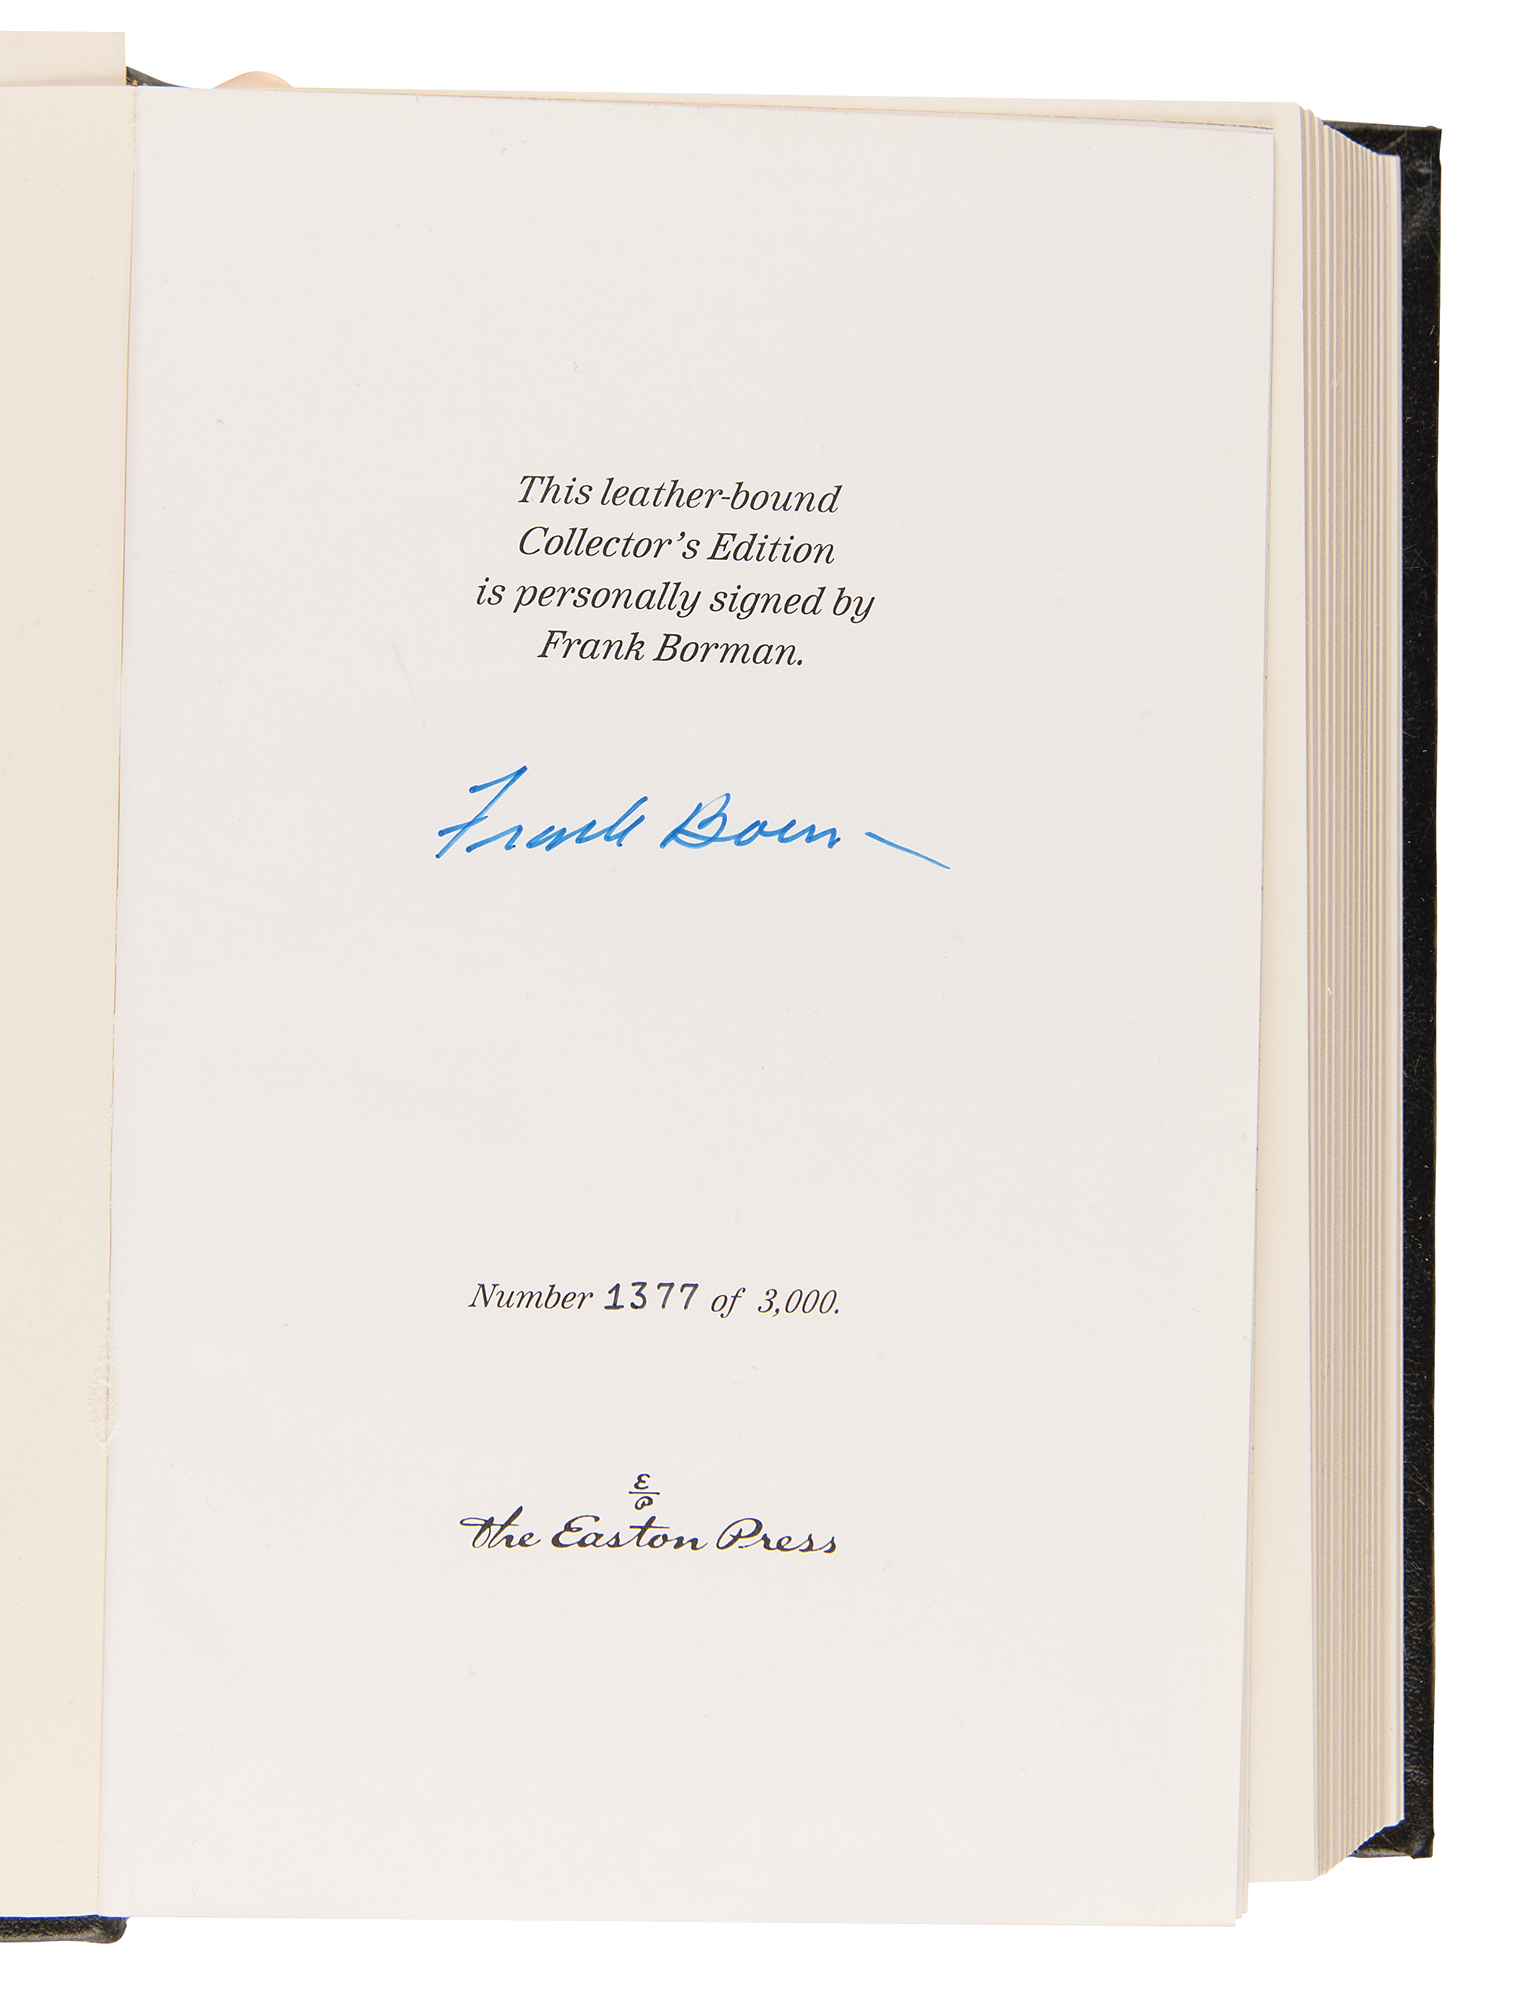 This leather-bound
Collector's Edition
is personally signed by
Frank Borman.
Frank Borman
Number 1377 of 3,000.
E
P
The Easton Press